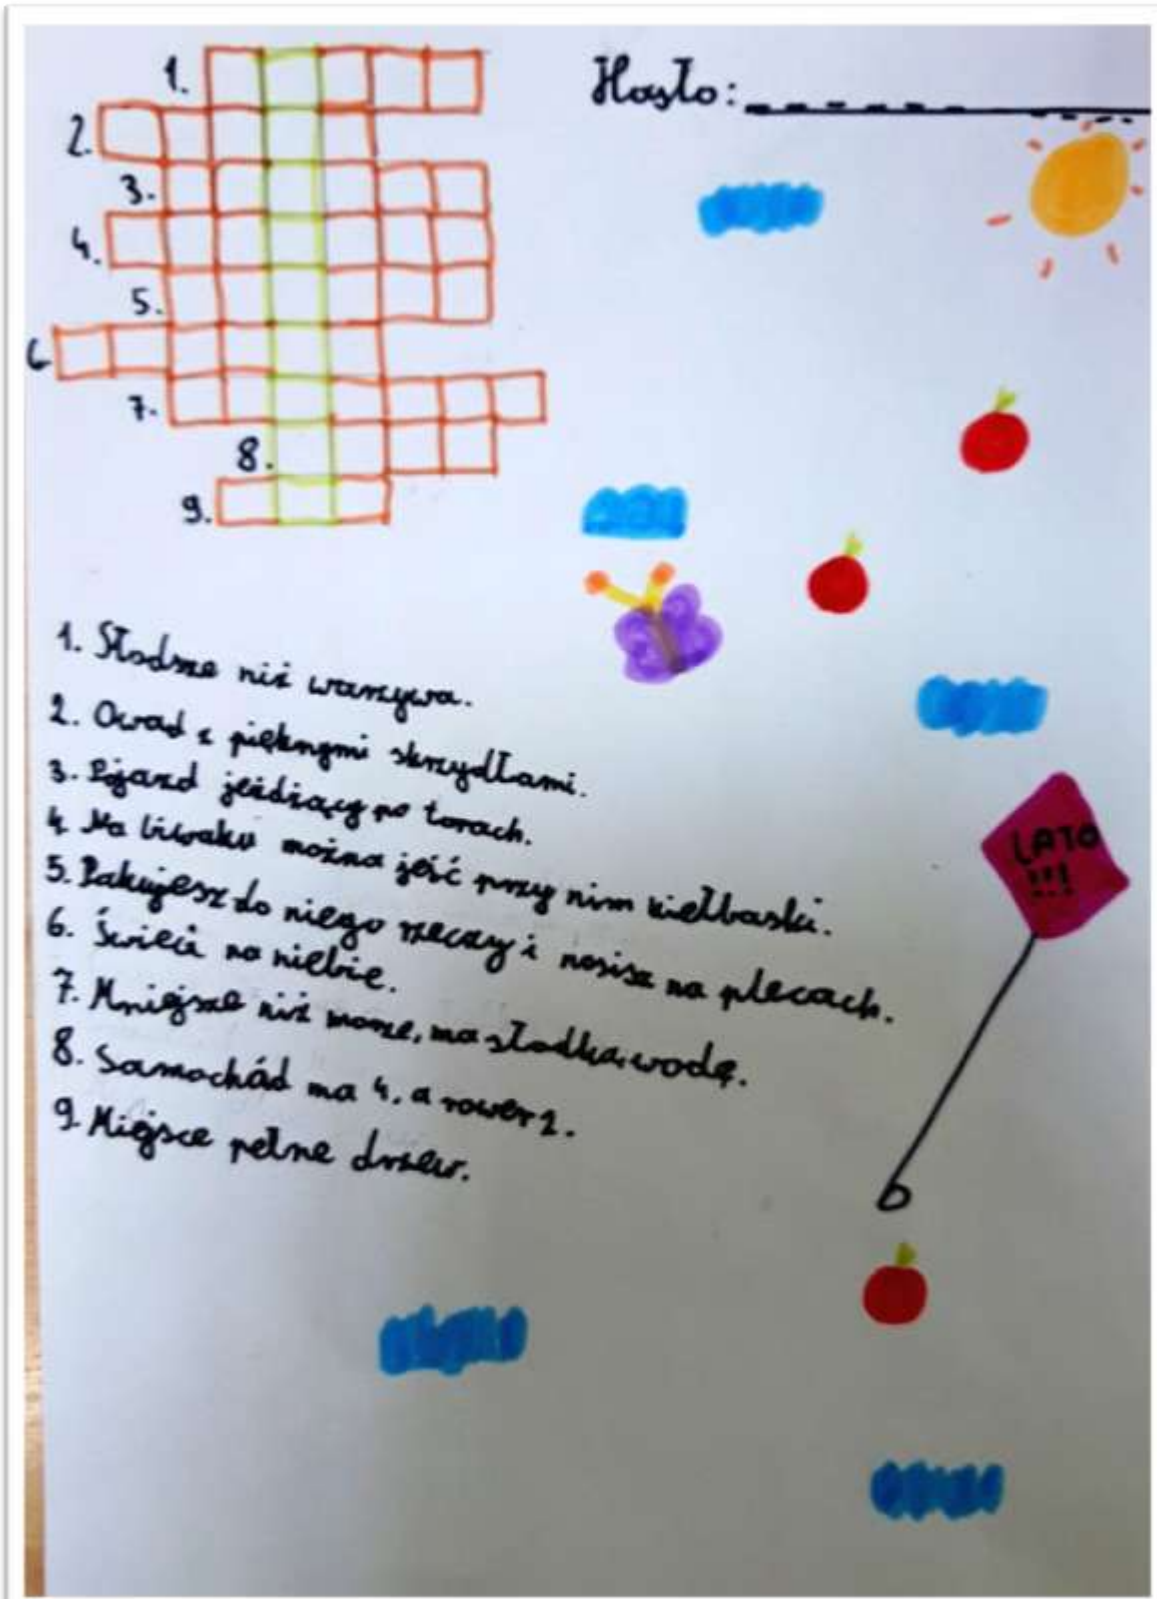 1.
Hasło:
2.
3.
4.
5.
6
7.
8.
9.
1. Słodsze niż warzywa.
2. Owad z pięknymi skrzydłami.
3. Pojazd jeżdżący po torach.
4 Na biwaku można jeść przy nim kiełbaski.
5. Pakujesz do niego rzeczy i nosisz na plecach.
6. Świeci na niebie.
7. Mniejsze niż morze, ma słodką wodę.
8. Samochód ma 4, a rower 2.
9. Miejsce pełne drzew.
LATO
!!!